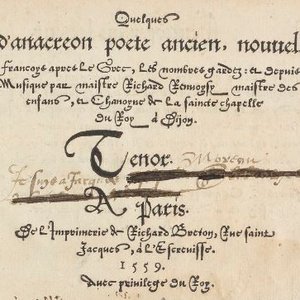 Quelques
d'anacreon poete ancien, nouvel
françoys apres le Grec, les nombres gardez: et depuis
Musique par maistre Richard Renvoysy maistre des
enfans, et Chanoyne de la saincte chapelle
du Roy à Dijon.
Tenor.
Je suys a Jacques Moreau
A Paris.
De l'Imprimerie de Richard Breton, Rue saint
Jacques, à l'Escrevisse.
1559.
Avec privilege du Roy.